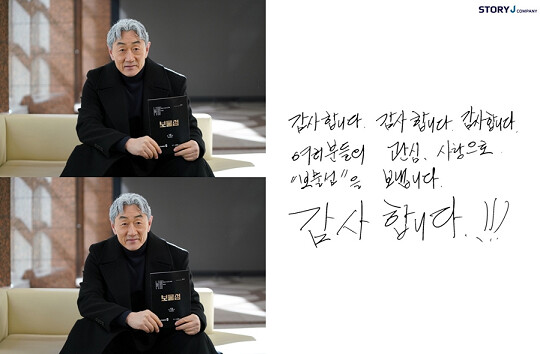 STORY J COMPANY
보물섬
보물섬
감사합니다. 감사합니다. 감사합니다.
여러분들의 관심, 사랑으로
"보물섬"을 보냅니다.
감사합니다.!!!